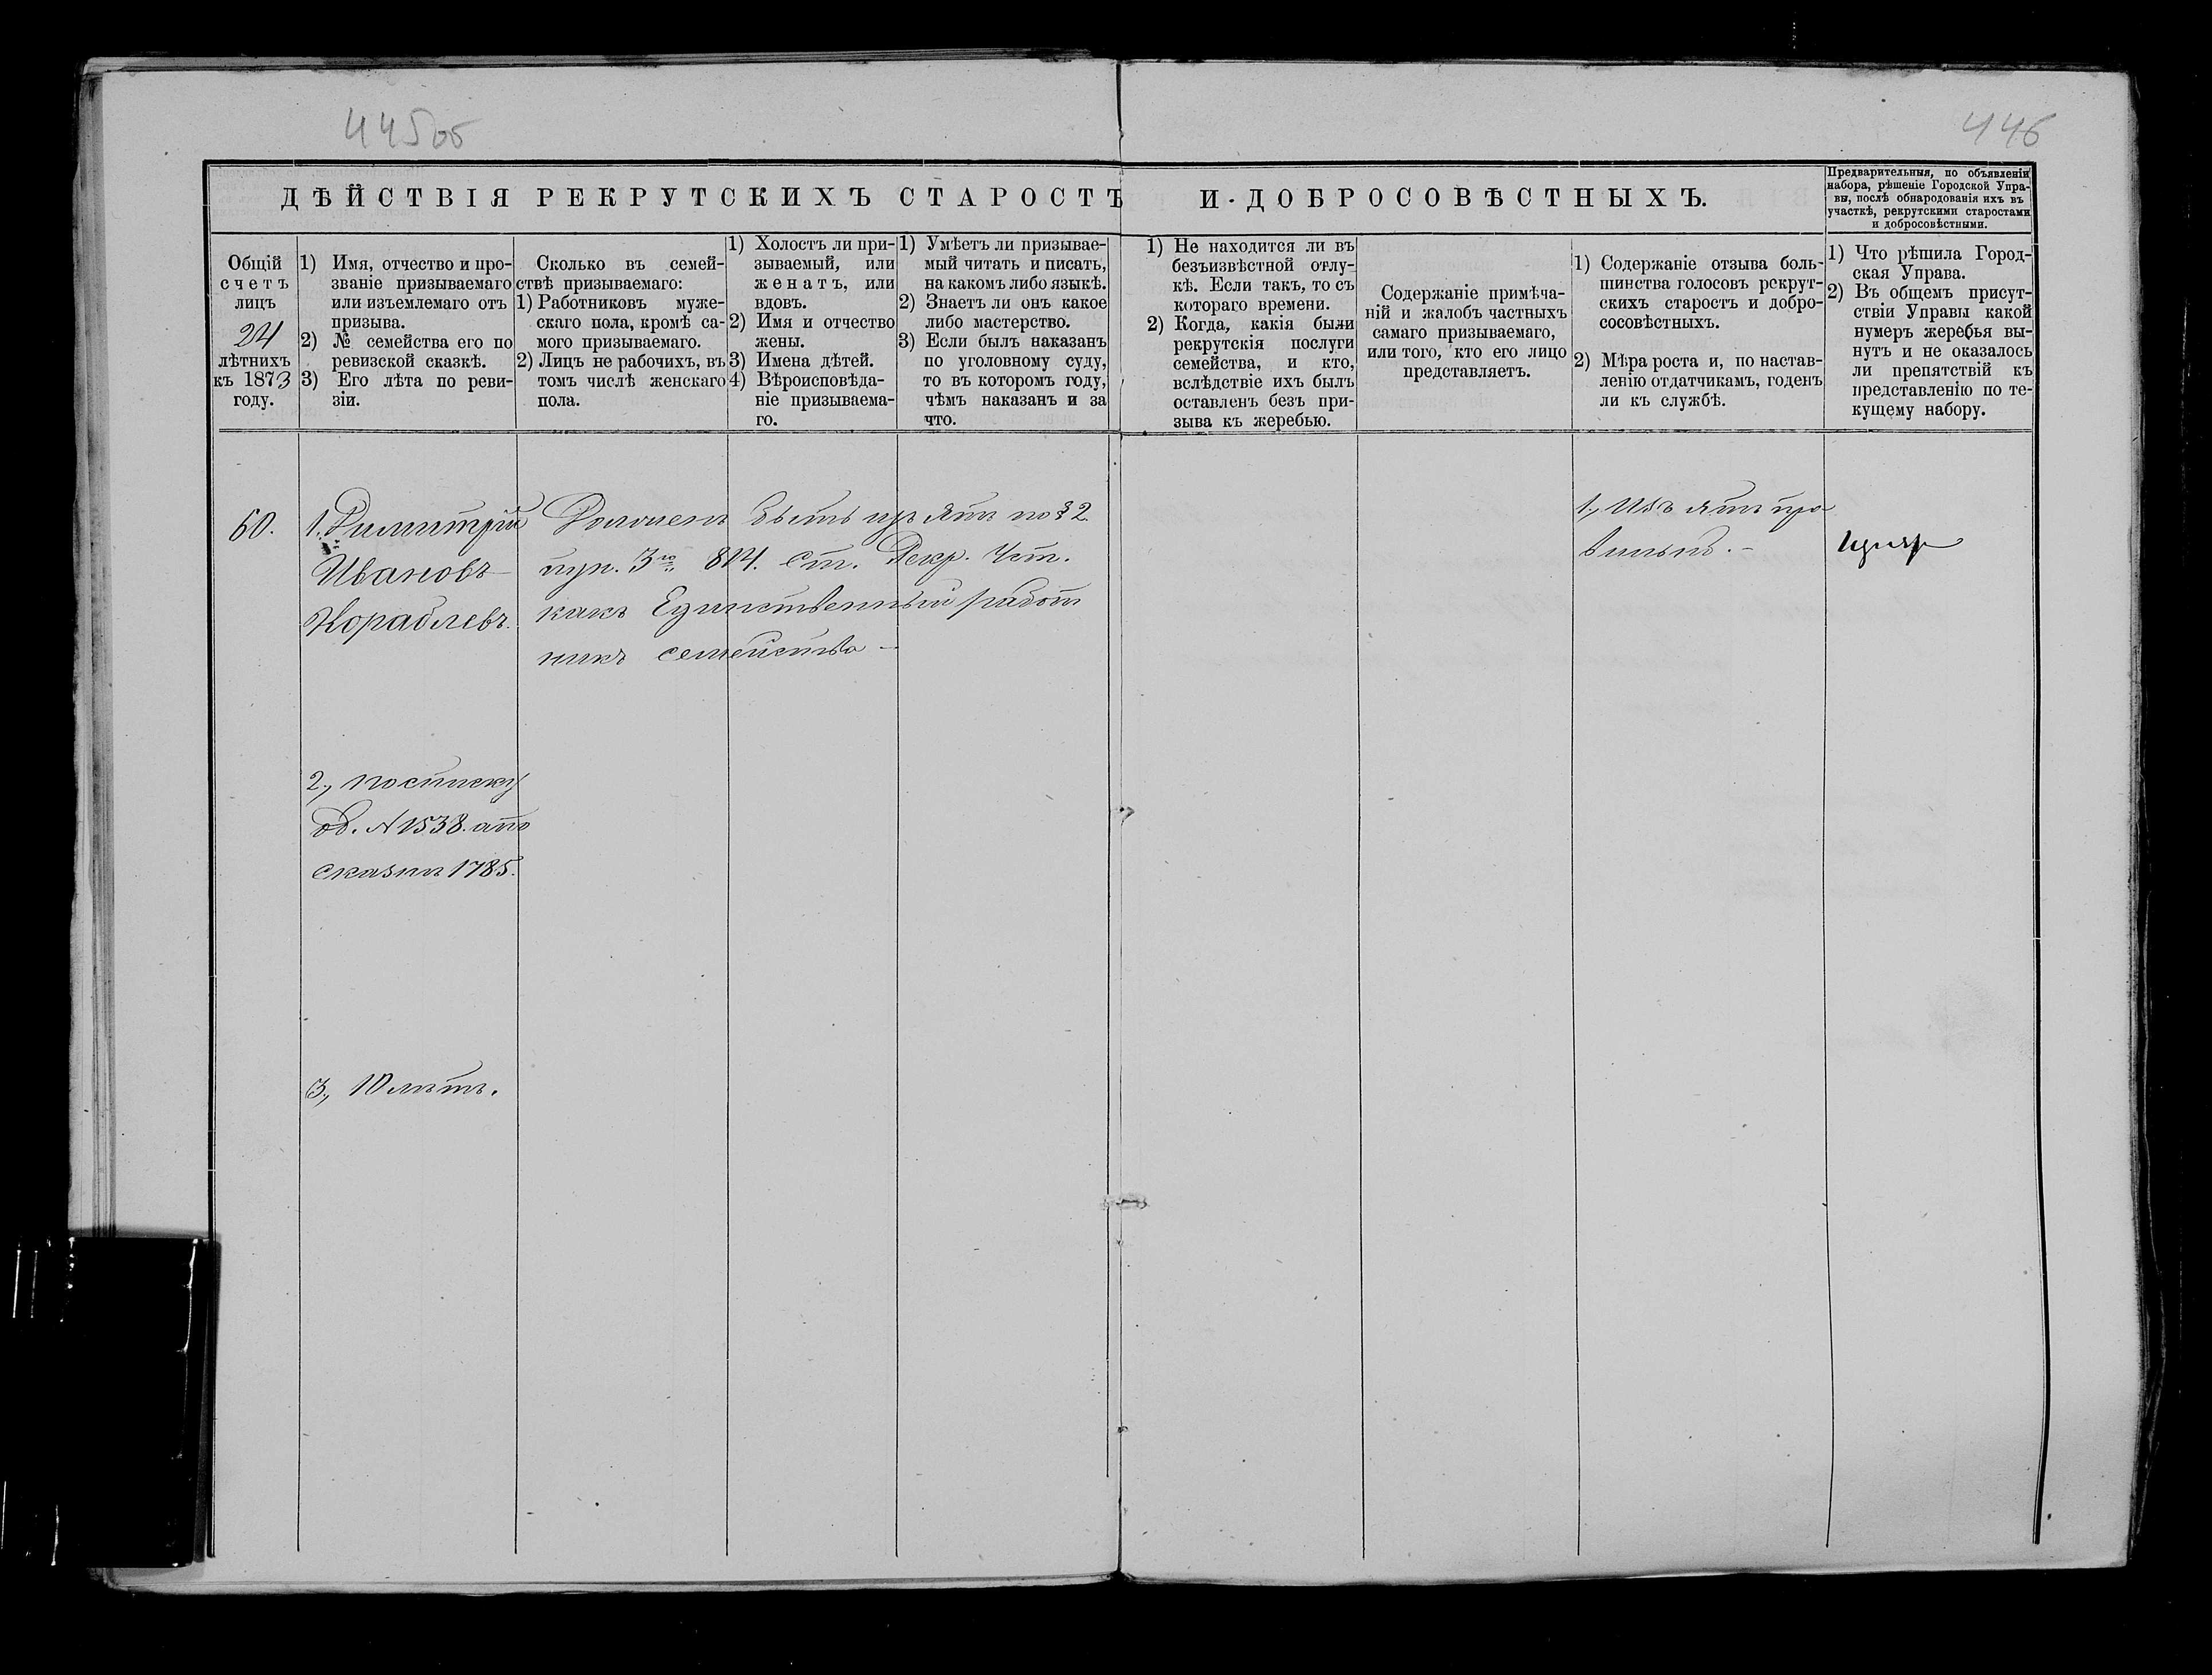 445об
446
ДѢЙСТВІЯ РЕКРУТСКИХЪ СТАРОСТЪ И ДОБРОСОВѢСТНЫХЪ.
Предварительныя, по объявленіи
набора, рѣшеніе Городской Упра-
вы, послѣ обнародованія ихъ въ
участкѣ, рекрутскими старостами
и добросовѣстными.
Общій
счетъ
лицъ
24
лѣтнихъ
къ 1873
году.
1) Имя, отчество и про-
званіе призываемаго
или изъемлемаго отъ
призыва.
2) № семейства его по
ревизской сказкѣ.
3) Его лѣта по реви-
зіи.
Сколько въ семей-
ствѣ призываемаго:
1) Работниковъ муже-
скаго пола, кромѣ са-
мого призываемаго.
2) Лицъ не рабочихъ, въ
томъ числѣ женскаго
пола.
1) Холостъ ли при-
зываемый, или
женатъ, или
вдовъ.
2) Имя и отчество
жены.
3) Имена дѣтей.
4) Вѣроисповѣда-
ніе призываема-
го.
1) Умѣетъ ли призывае-
мый читать и писать,
на какомъ либо языкѣ.
2) Знаетъ ли онъ какое
либо мастерство.
3) Если былъ наказанъ
по уголовному суду,
то въ которомъ году,
чѣмъ наказанъ и за
что.
1) Не находится ли въ
безъизвѣстной отлу-
кѣ. Если такъ, то съ
котораго времени.
2) Когда, какія были
рекрутскія послуги
семейства, и кто,
вслѣдствіе ихъ былъ
оставленъ безъ при-
зыва къ жеребью.
Содержаніе примѣча-
ній и жалобъ частныхъ
самаго призываемаго,
или того, кто его лицо
представляетъ.
1) Содержаніе отзыва боль-
шинства голосовъ рекрут-
скихъ старостъ и добро-
сосовѣстныхъ.
2) Мѣра роста и, по настав-
ленію отдатчикамъ, годенъ
ли къ службѣ.
1) Что рѣшила Город-
ская Управа.
2) Въ общемъ присут-
ствіи Управы какой
нумеръ жеребья вы-
нутъ и не оказалось
ли препятствій къ
представленію по те-
кущему набору.
60.
1. Димитрій
Ивановъ
Кораблевъ.
2., по списку
об. № 1538. а по
сказкѣ 1785.
3., 10 лѣтъ.
Долженъ быть изъятъ по § 2.
пун. 3го 814. ст. Рекр. Уст.
какъ Единственный работ
никъ семейства –
1., Изъятъ пра
вильнѣ. –